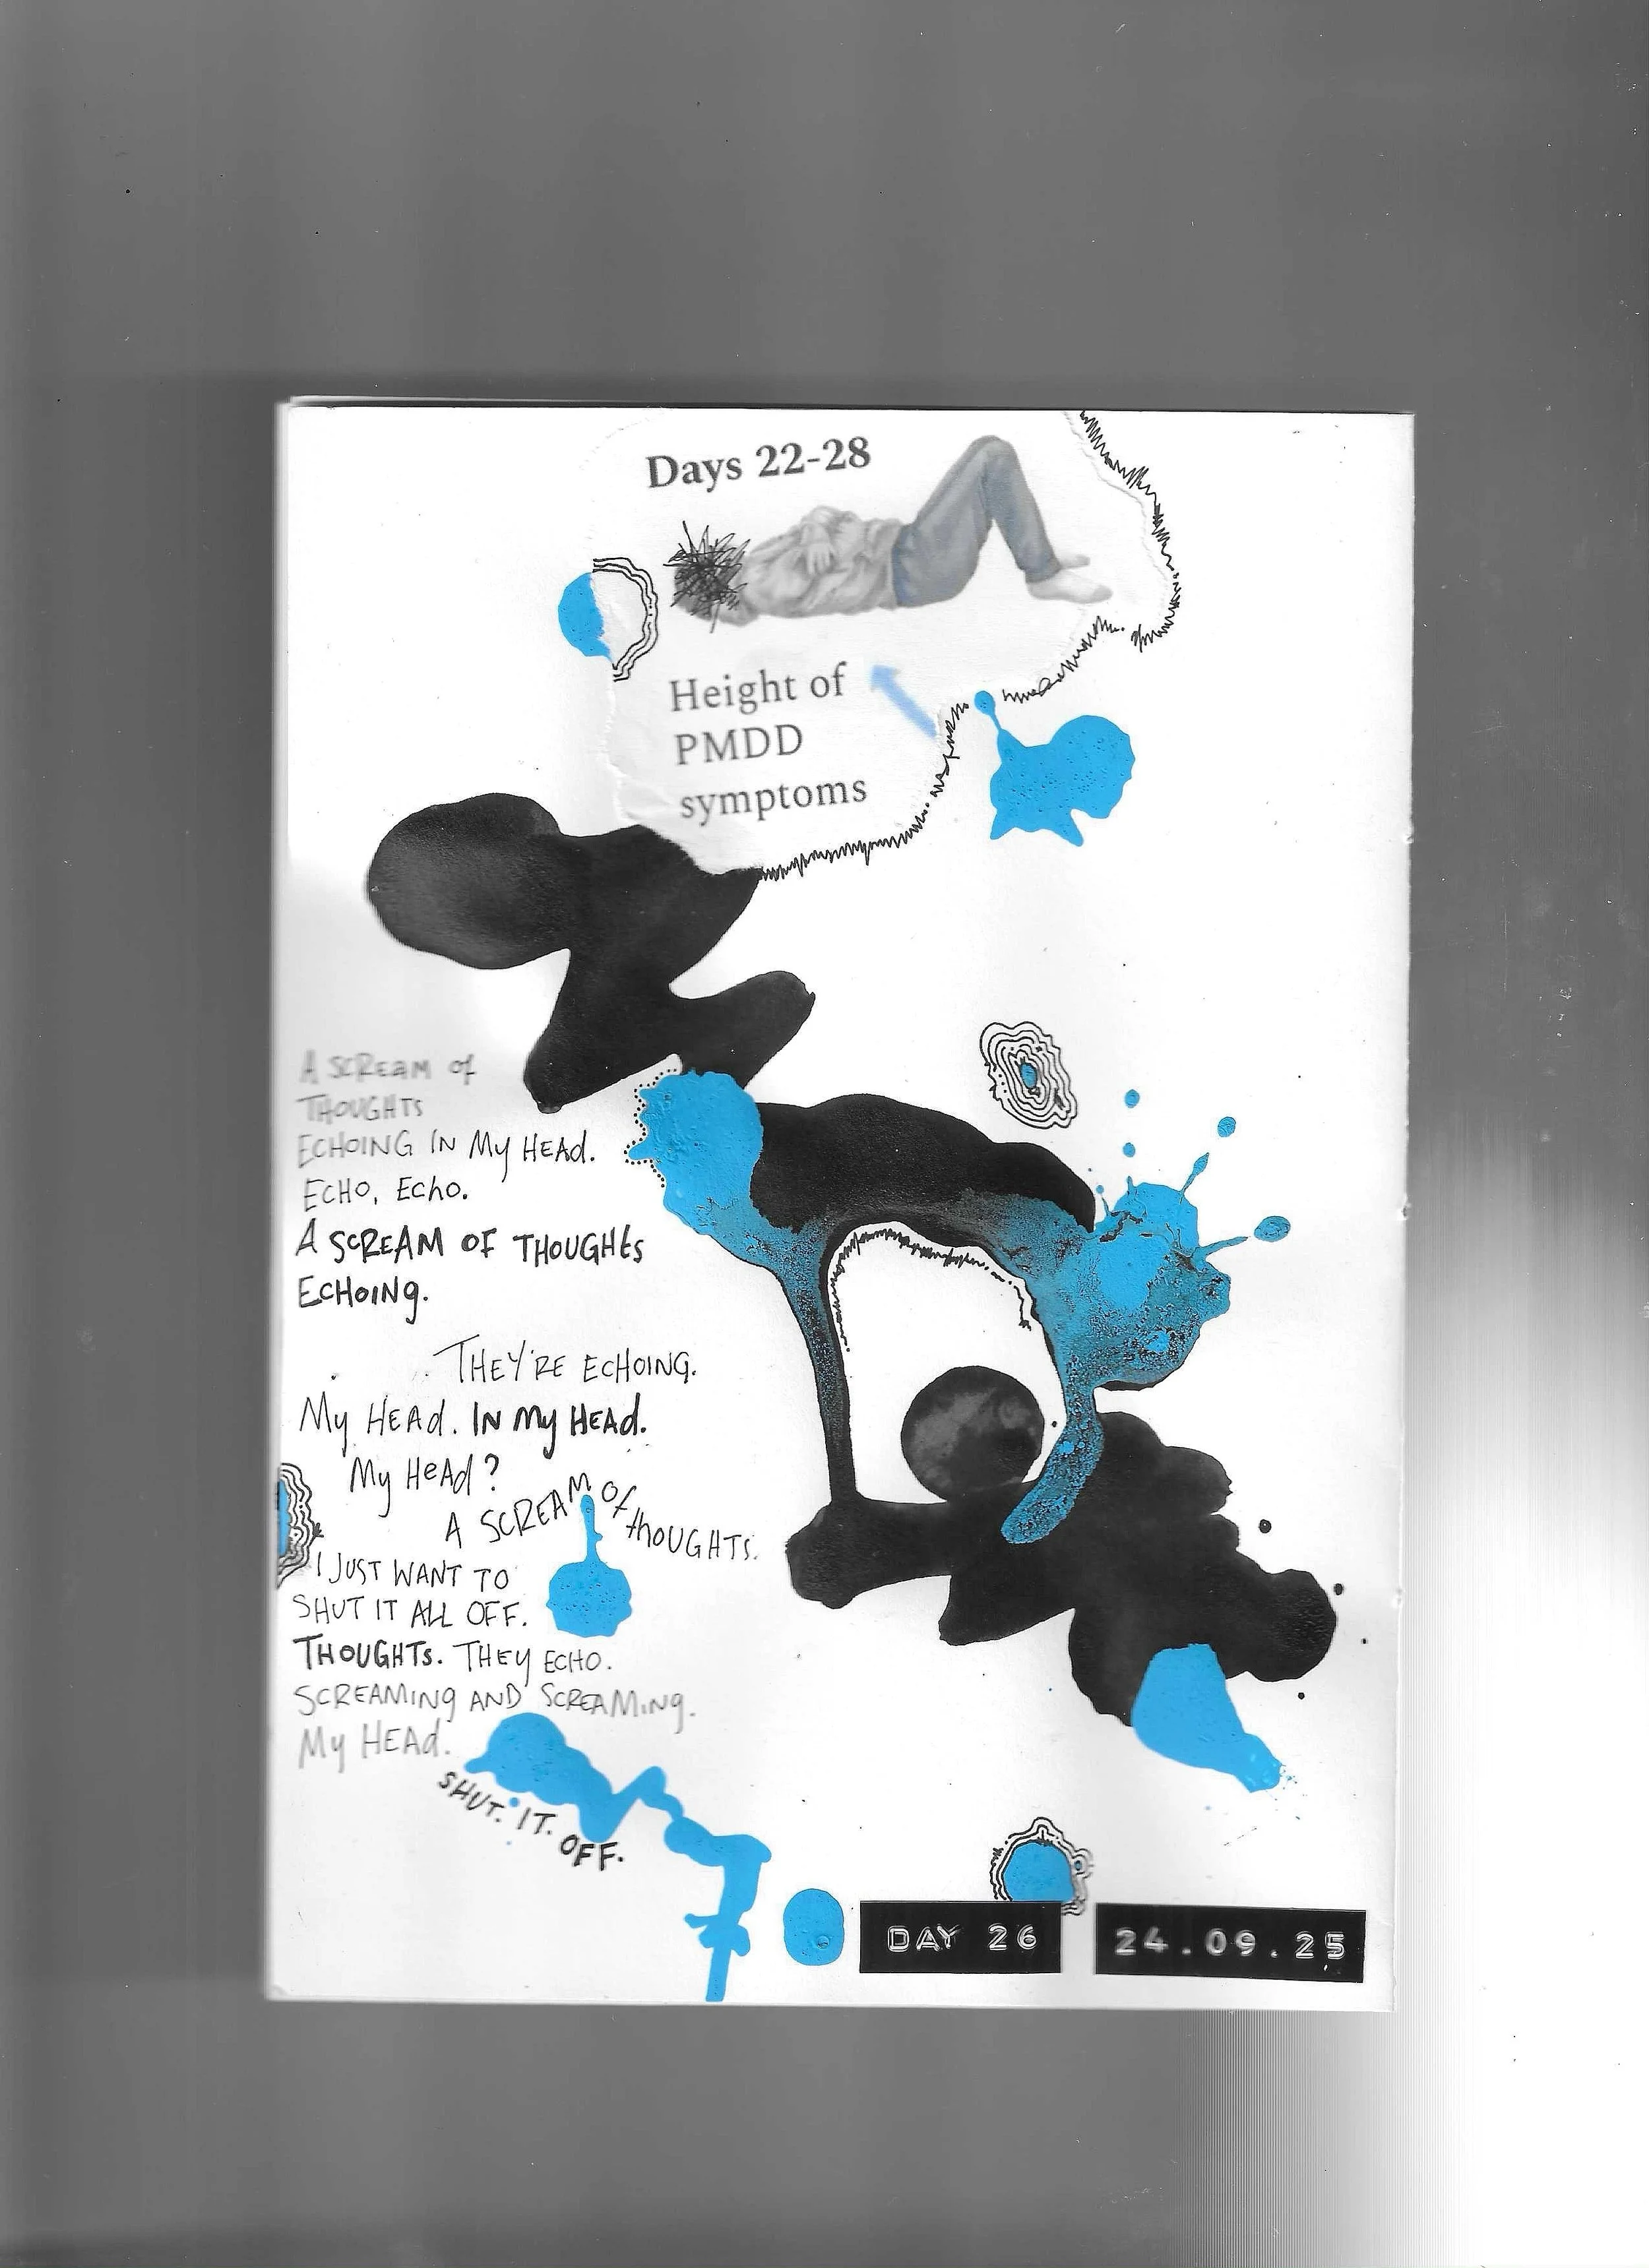 Days 22-28
Height of
PMDD
symptoms
A SCREAM of
THOUGHTS
ECHOING IN My HEAd.
ECHO, Echo.
A SCREAM OF THOUGHts
ECHOING.
THEY'RE ECHOING.
My HEAd. IN My HEAd.
My HeAd?
A SCREAM Of thOUGHTS.
I JUST WANT TO
SHUT IT ALL OFF.
THOUGHTS. THEY ECHO.
SCREAMING AND SCREAMING.
My HEAd.
SHUT. IT. OFF.
DAY 26
24.09.25